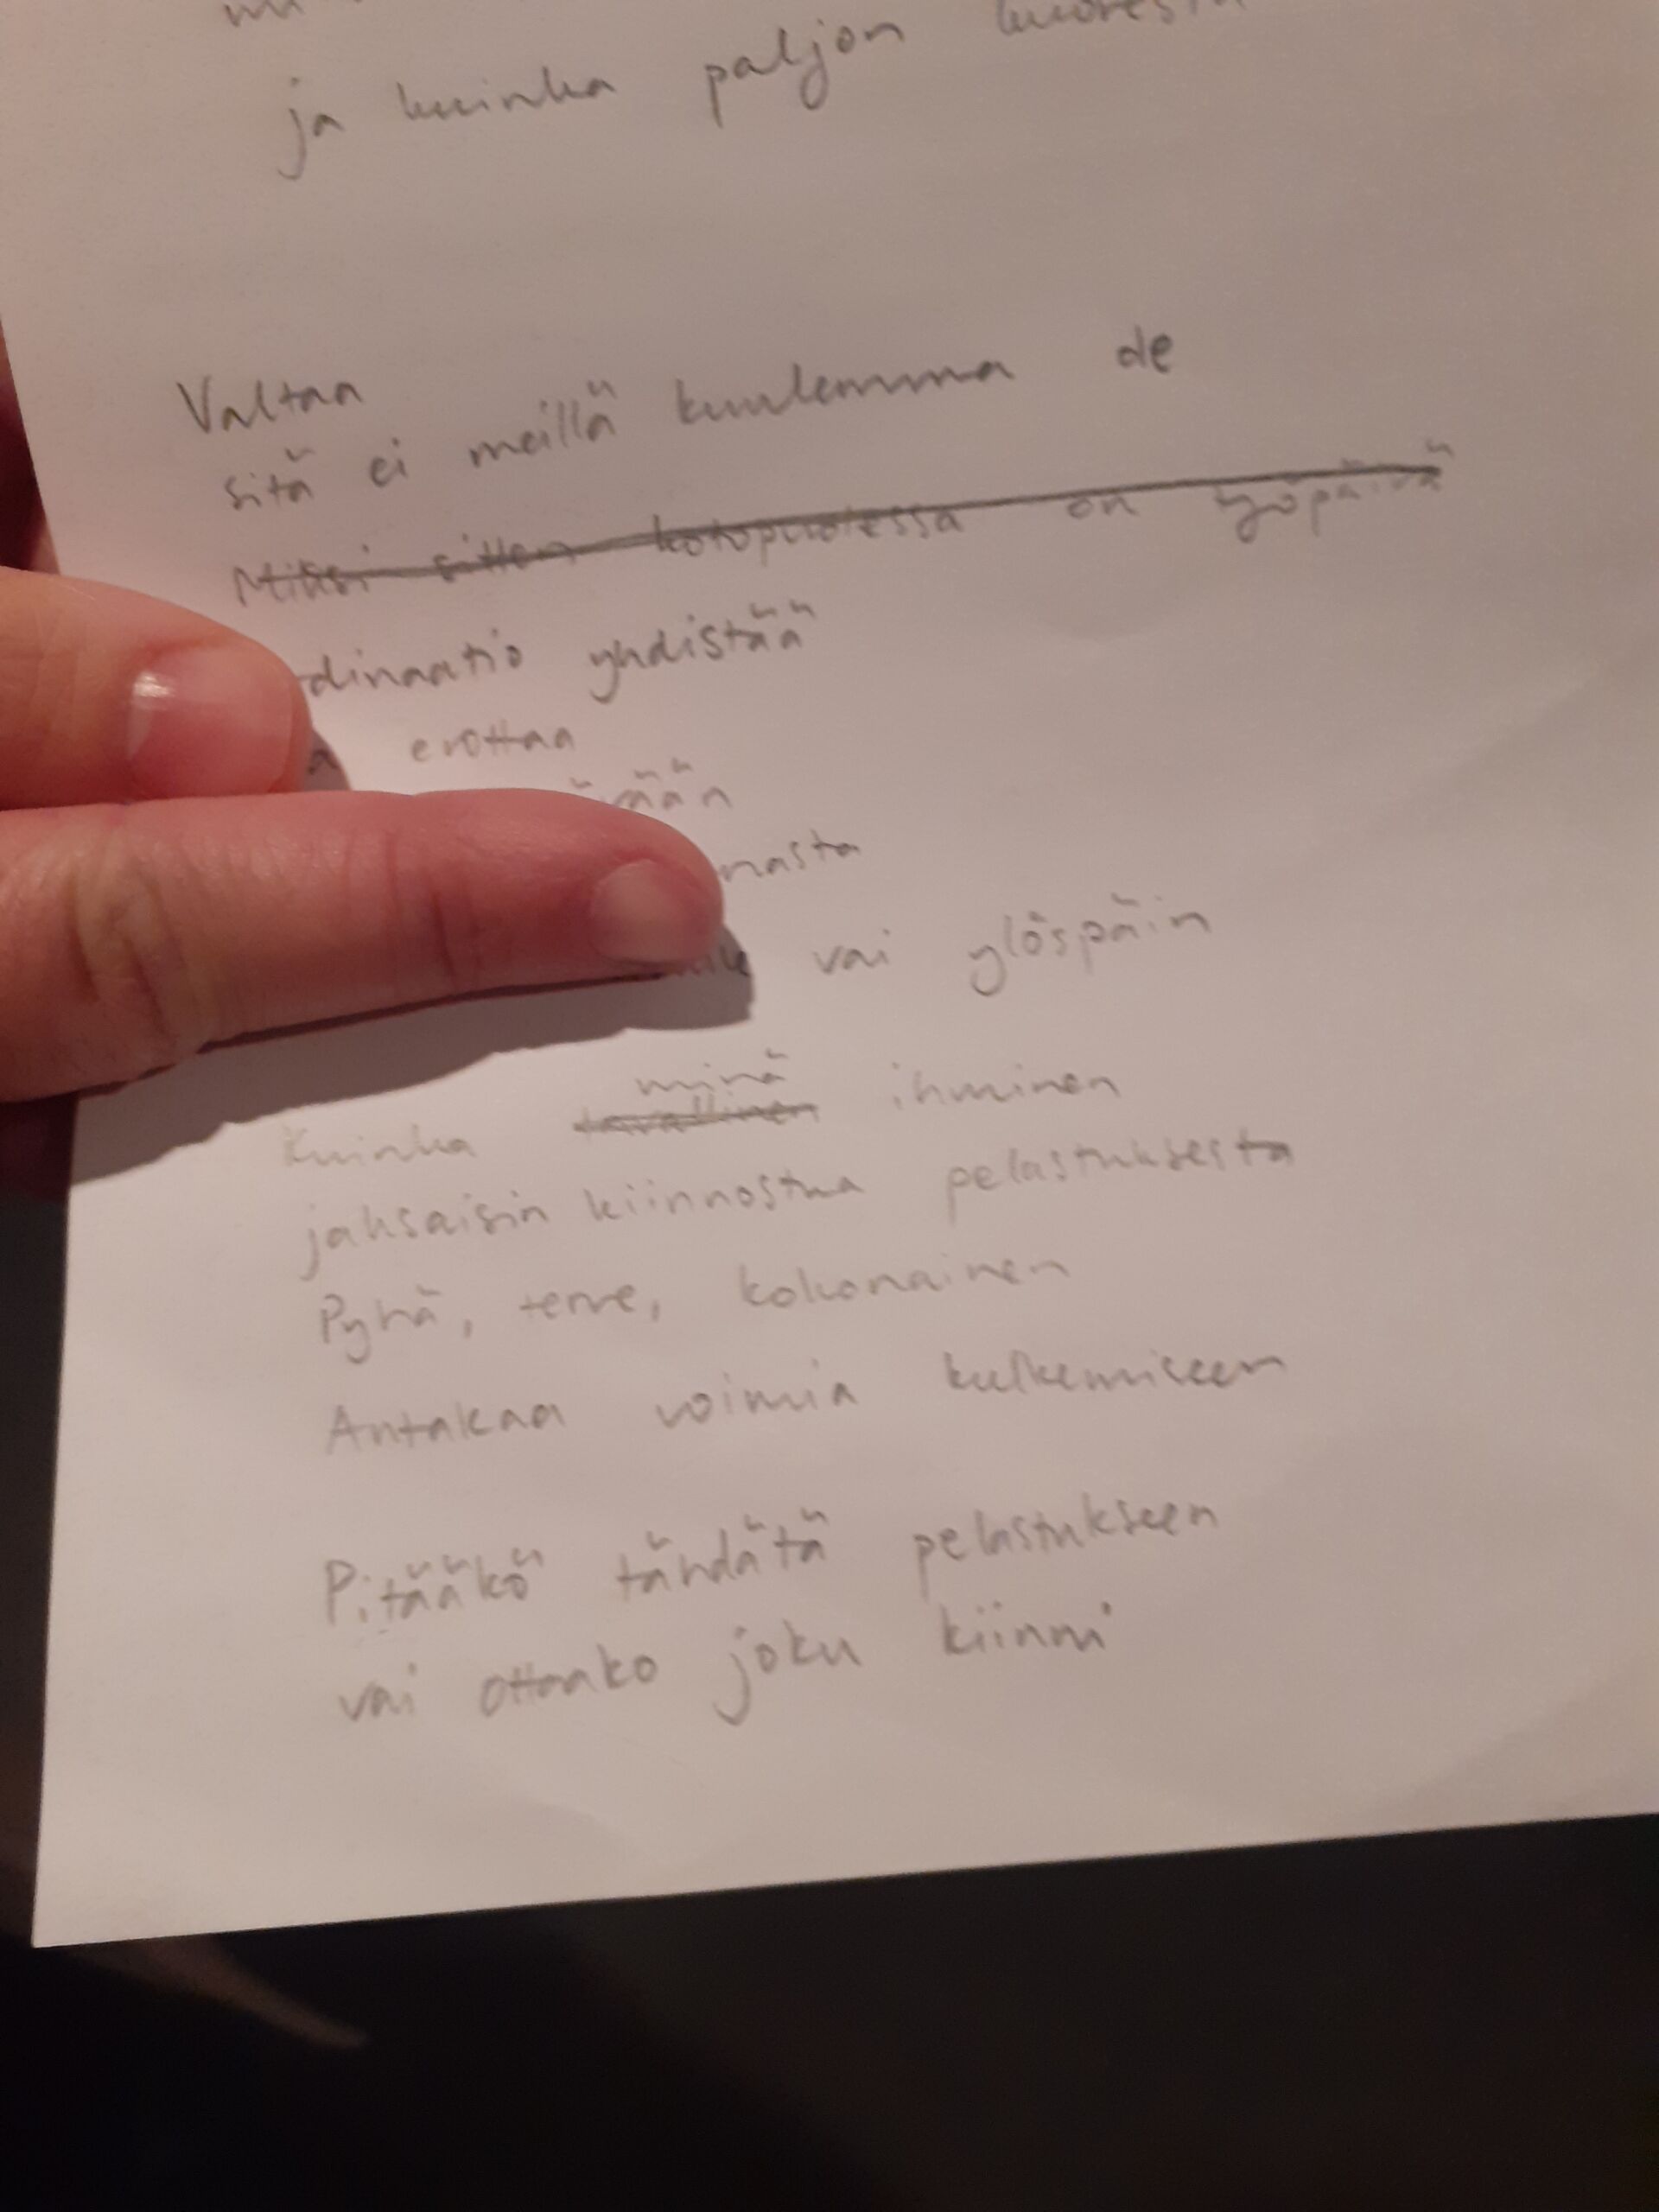 ja kuinka paljon
Valtaa
sitä ei meillä kuulemma de
Miksi sitten kotopuolessa on työpäivä
erottaa
vai ylöspäin
minä
Kuinka tavallinen ihminen
jaksaisin kiinnostua pelastuksesta
Pyhä, terve, kokonainen
Antakaa voimia kulkemiseen
Pitääkö tähdätä pelastukseen
vai ottaako joku kiinni
yhdistää